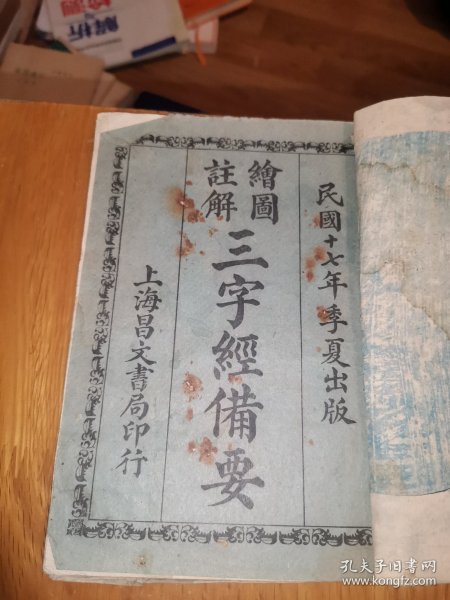 民國十七年季夏出版
繪圖
註解
三字經備要
上海昌文書局印行
解析
檢測
孔夫子旧书网
www.kongfz.com